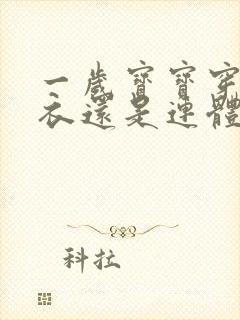 一歲寶寶穿
衣還是連體
科拉